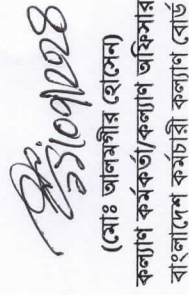 ১১/০৭/২২২৪
(মোঃ আলমগীর হোসেন)
কল্যাণ কর্মকর্তা/কল্যাণ অফিসার
বাংলাদেশ কর্মচারী কল্যাণ বোর্ড